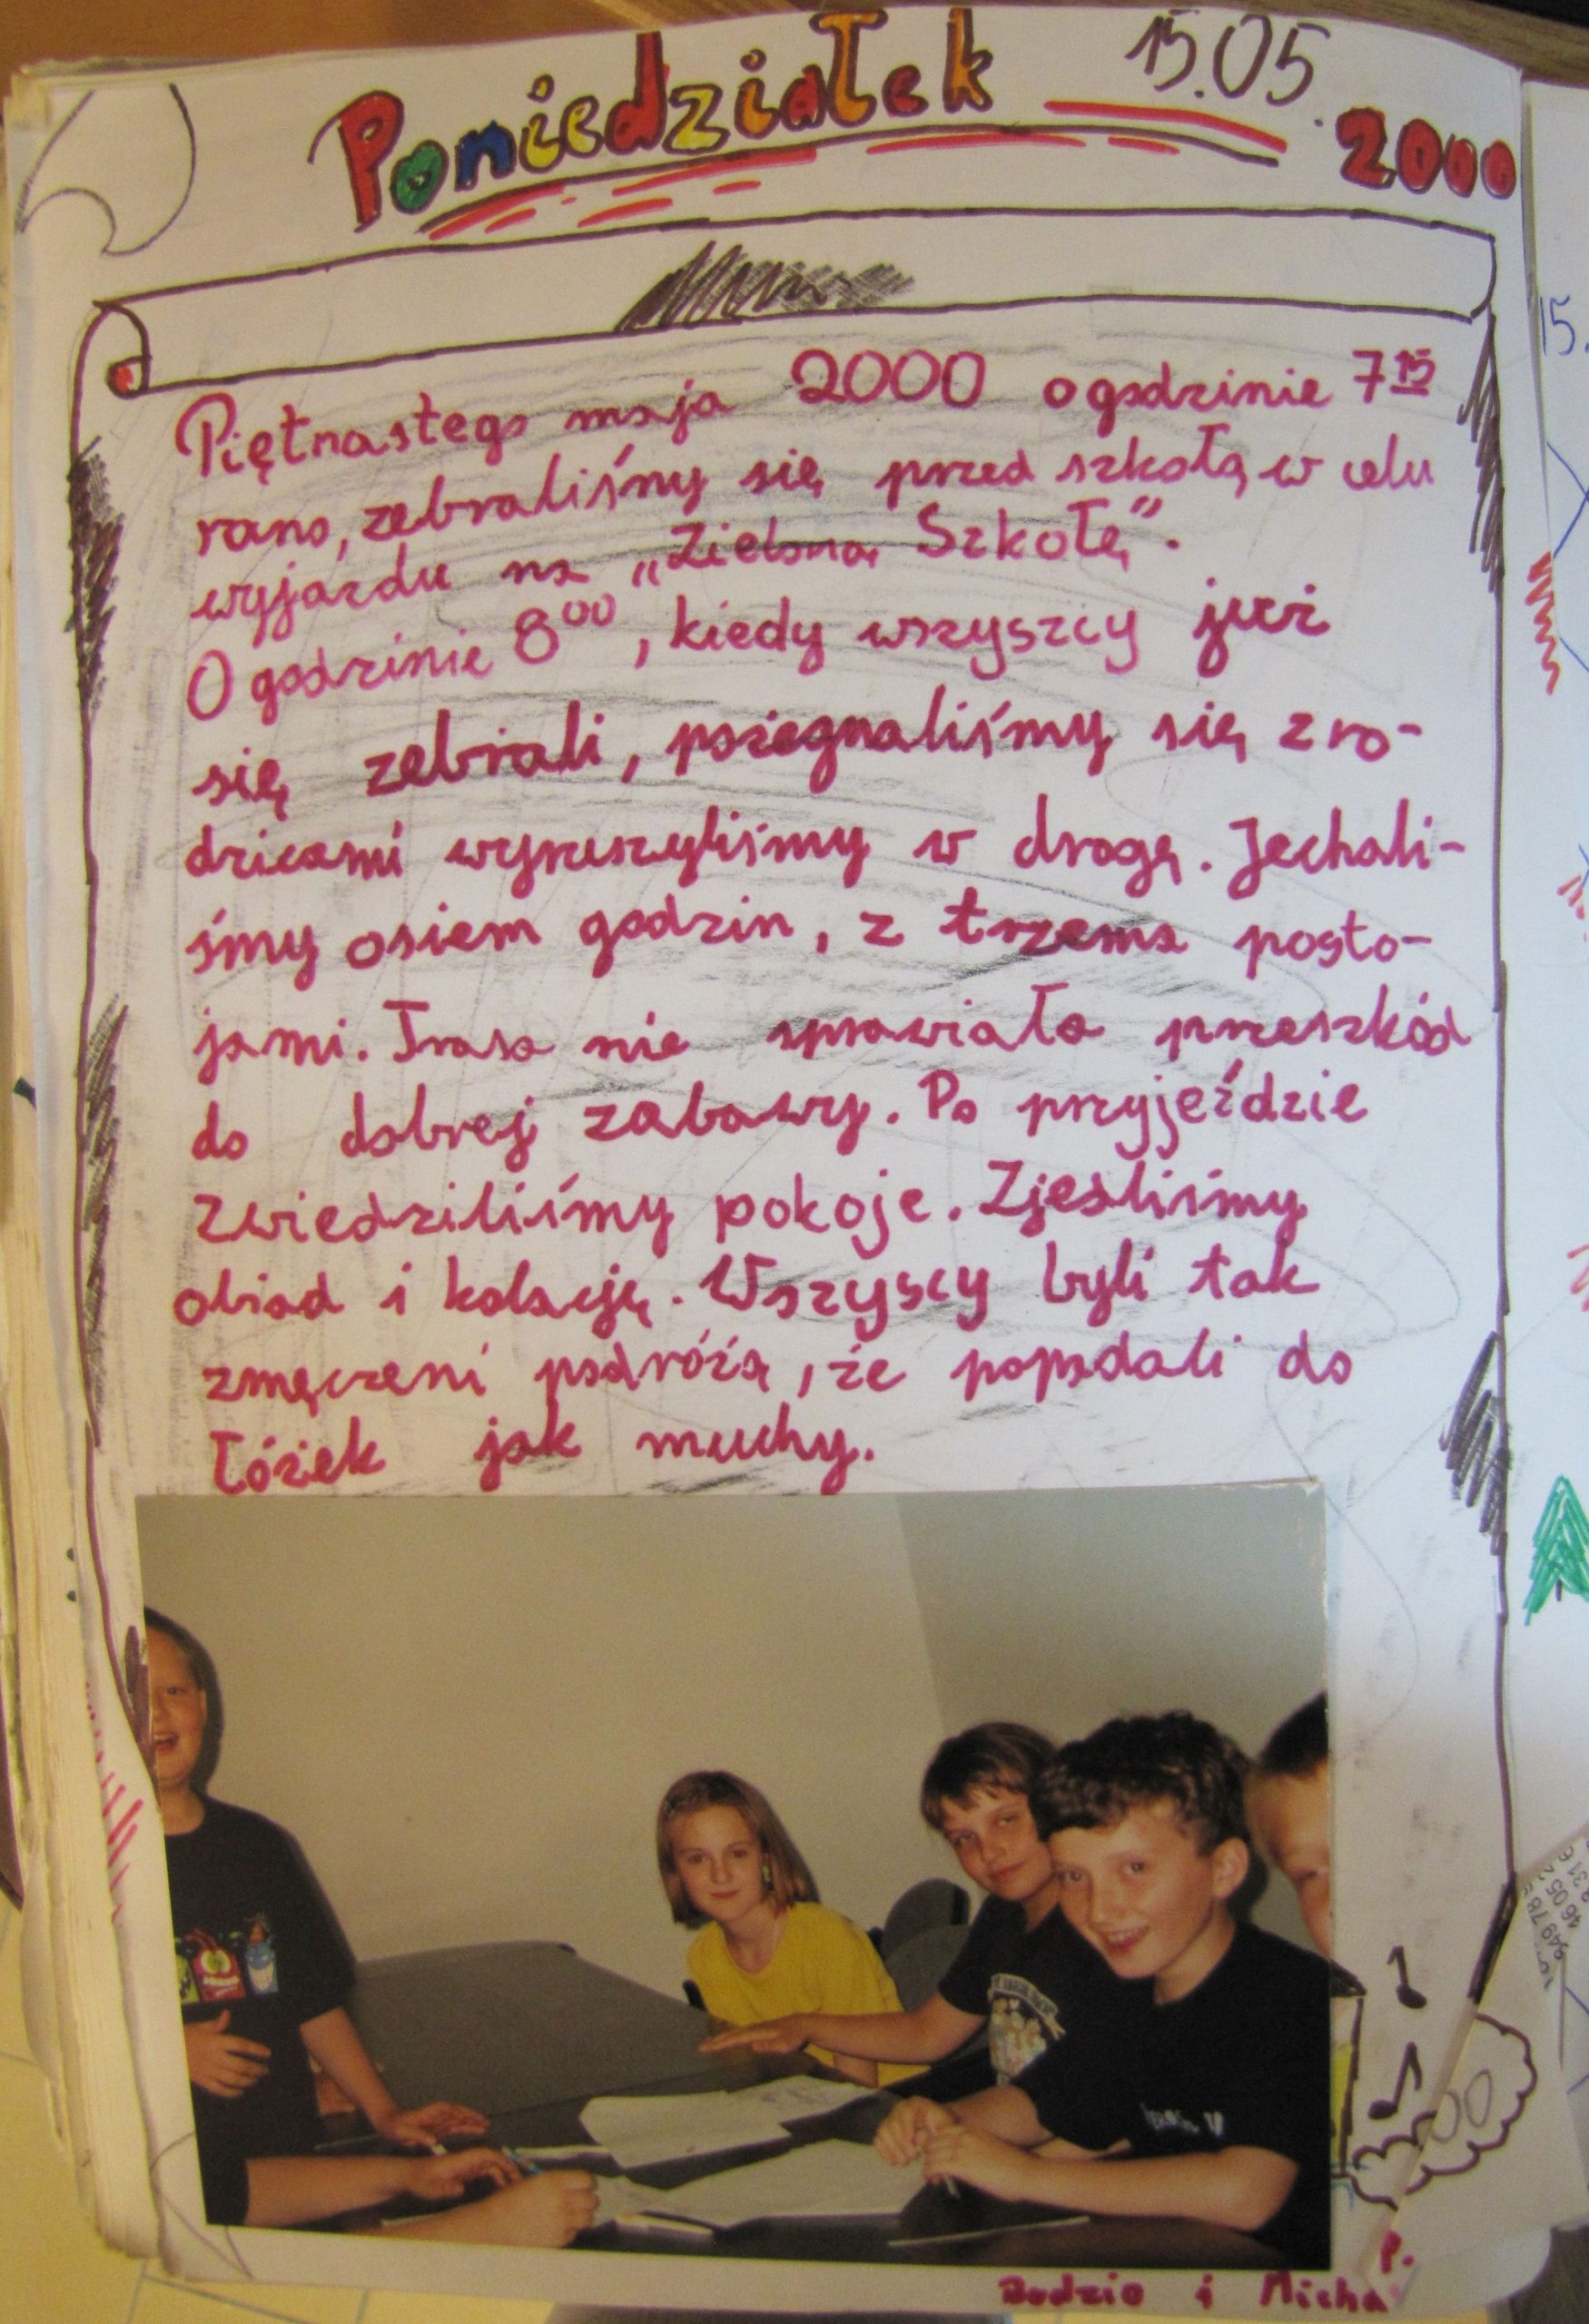 Poniedziałek 15.05.2000
Piętnastego maja 2000 o godzinie 7¹⁵
rano, zebraliśmy się przed szkołą w celu
wyjazdu na „Zieloną Szkołę".
O godzinie 8⁰⁰, kiedy wszyszcy już
się zebrali, pożegnaliśmy się z ro-
dzicami wyruszyliśmy w drogę. Jechali-
śmy osiem godzin, z trzema posto-
jami. Trasa nie sprawiała przeszkód
do dobrej zabawy. Po przyjeździe
zwiedziliśmy pokoje. Zjedliśmy
obiad i kolację. Wszyscy byli tak
zmęczeni podróżą, że popadali do
łóżek jak muchy.
P.
i Micha
15.